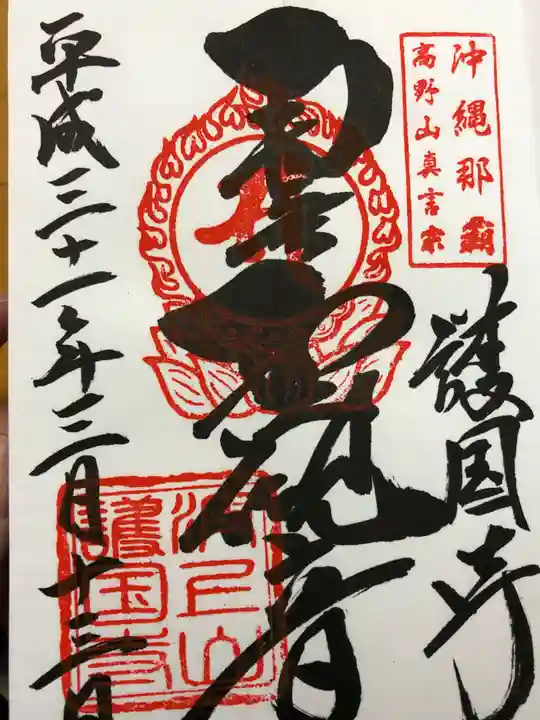 沖縄那覇
高野山真言宗
護国寺
観音
波上山
護国寺
平成三十一年三月十三日